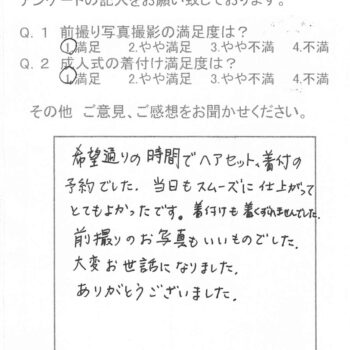 アンケートの記入をお願い致しております。
Q.1 前撮り写真撮影の満足度は?
1.満足 2.やや満足 3.やや不満 4.不満
Q.2 成人式の着付け満足度は?
1.満足 2.やや満足 3.やや不満 4.不満
その他 ご意見、ご感想をお聞かせください。
希望通りの時間でヘアセット、着付の
予約でした。当日もスムーズに仕上がって
とてもよかったです。着付けも着くずれませんでした。
前撮りのお写真もいいものでした。
大変お世話になりました。
ありがとうございました。